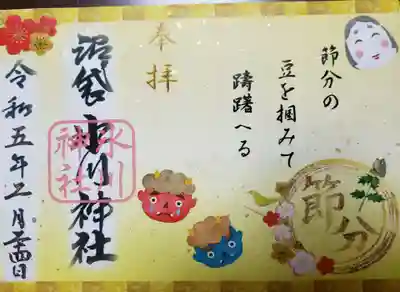 節分の
豆を掴みて
躊躇へる
節分
奉拝
沼袋氷川神社
氷川
神社
令和五年二月四日